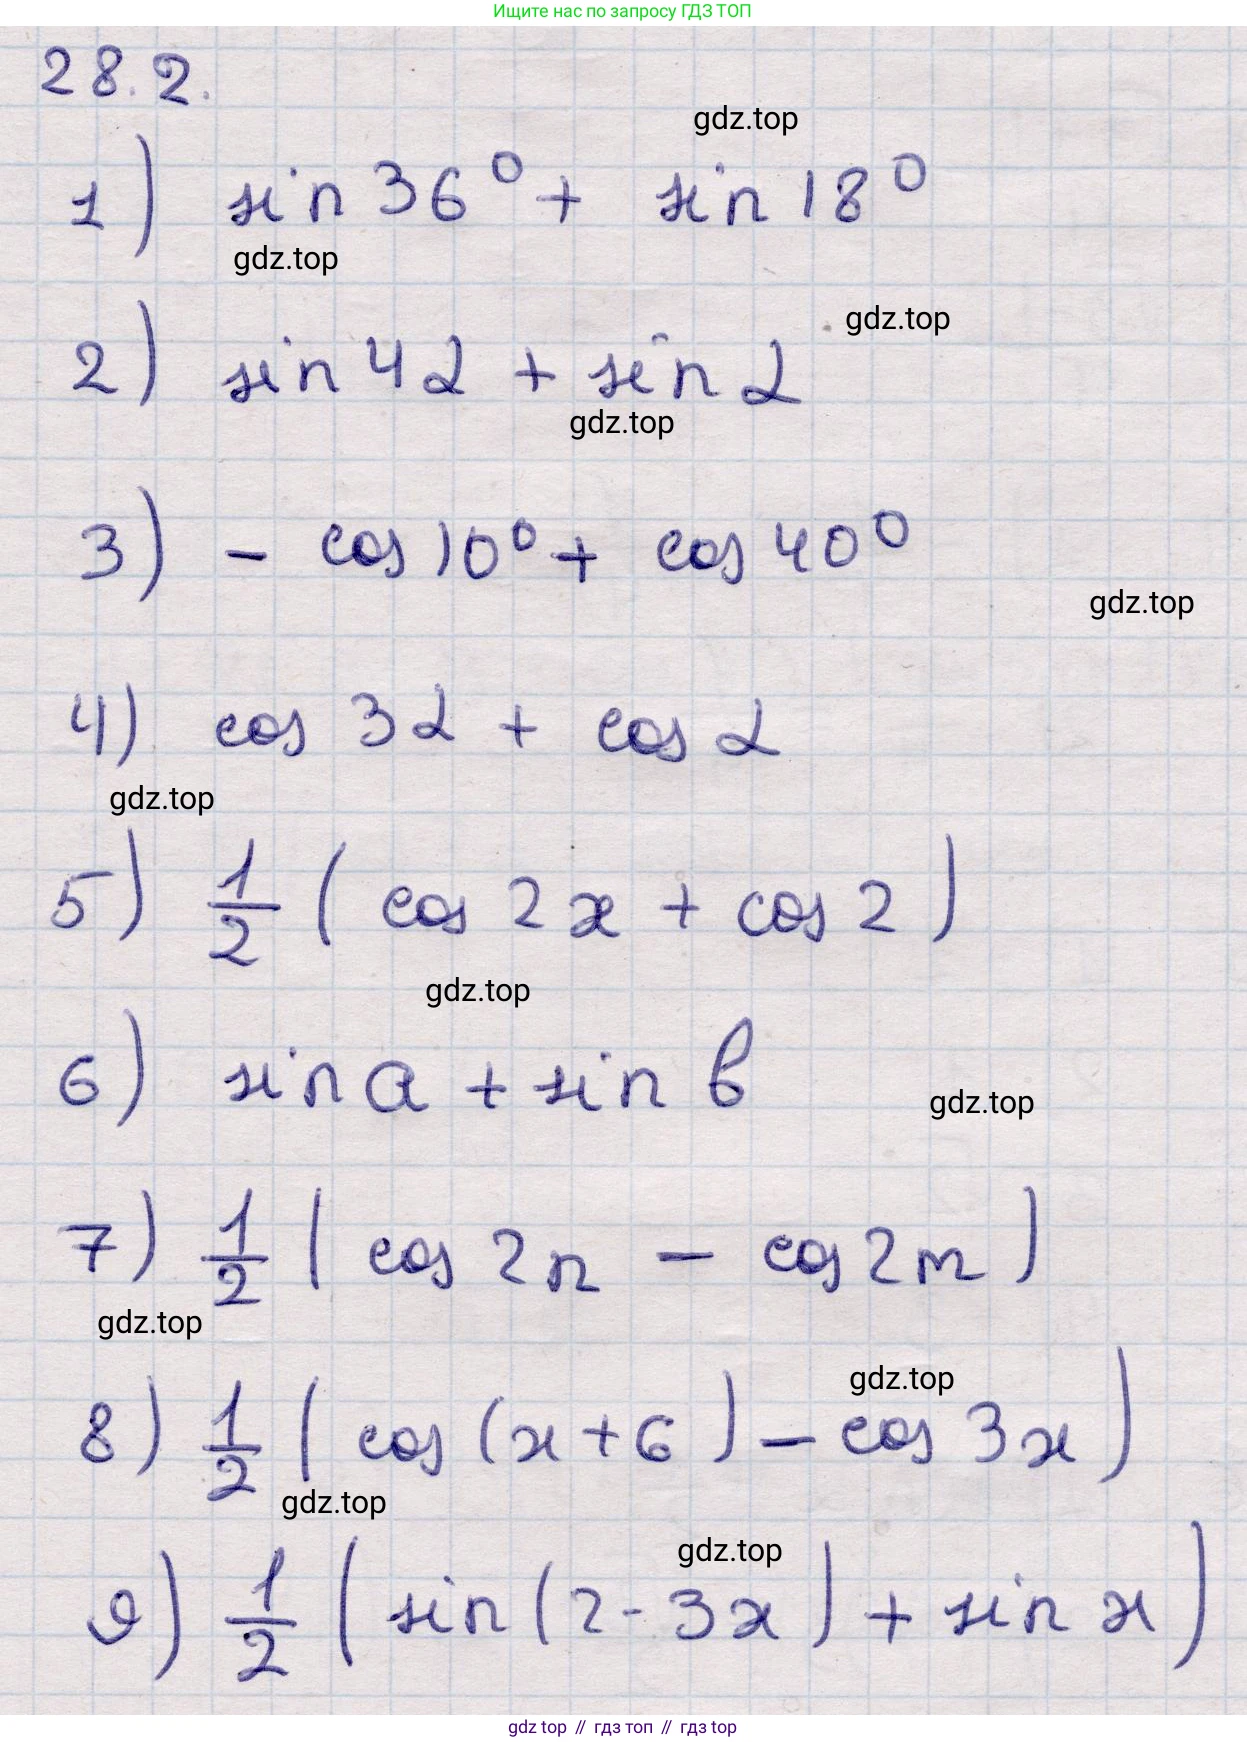 Ищите нас по запросу ГДЗ ТОП
28.2.
gdz.top
1) sin 36° + sin 18°
gdz.top
gdz.top
2) sin 4α + sin α
gdz.top
3) - cos 10° + cos 40°
gdz.top
4) cos 3α + cos α
gdz.top
5) 1/2 ( cos 2x + cos 2 )
gdz.top
6) sin a + sin b
gdz.top
7) 1/2 ( cos 2n - cos 2m )
gdz.top
gdz.top
8) 1/2 ( cos (x + 6) - cos 3x )
gdz.top
gdz.top
9) 1/2 ( sin (2 - 3x) + sin x )
gdz top // гдз топ // гдз top